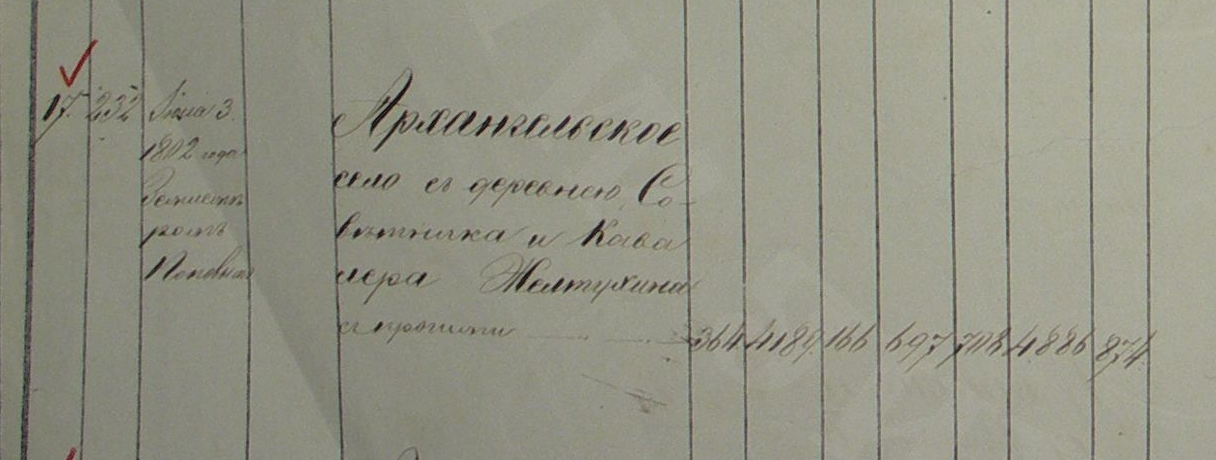 17. 232 Июня 3.
1802 года
Землемѣ
ромъ
Поповымъ
Архангельское
село съ деревнею Со-
вѣтника и Кава
лера Желтухина
съ прочими 364 4189 166 697 708 4886 874